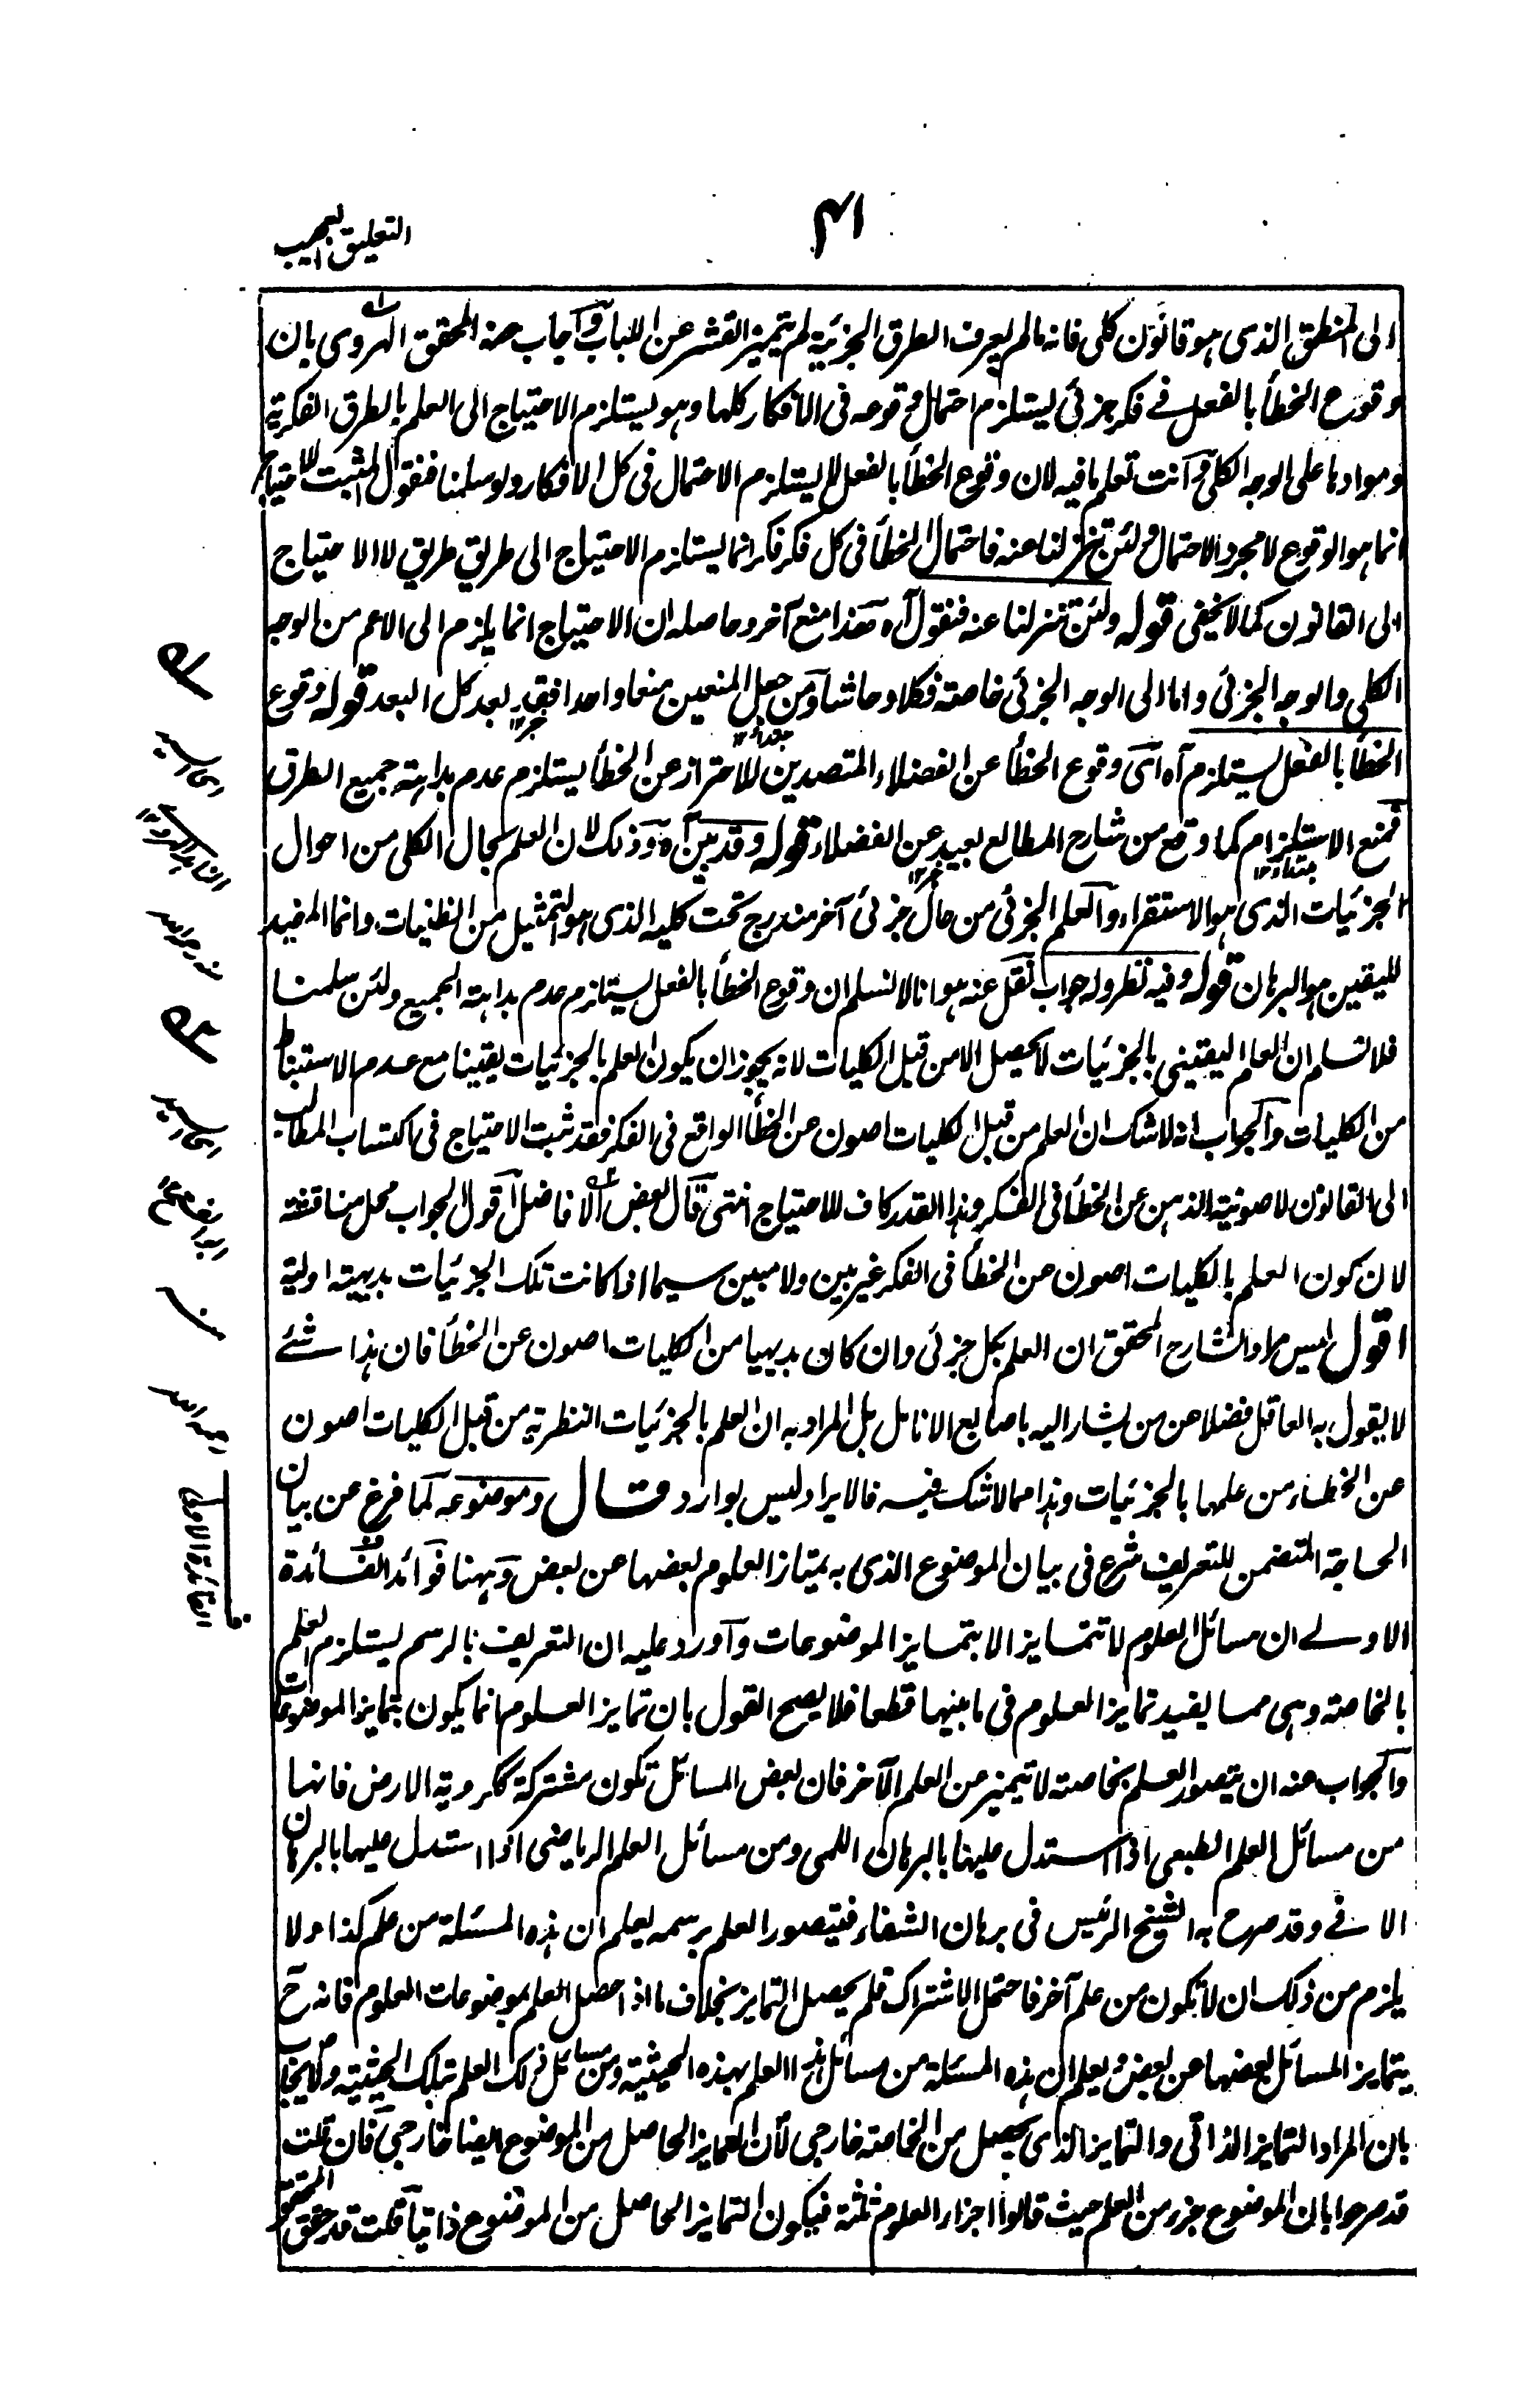 التعليق العجيب
٤١
الى المنطق الذى هو قانون كلى فانه ما لم يعرف الطرق الجزئية لم يتميز القشر عن اللباب وآجاب عنه المحقق الهروى بان
وقوع الخطأ بالفعل فى فكر جزئى يستلزم احتمال وقوعه فى الافكار كلها وهو يستلزم الاحتياج الى العلم بالطرق الفكرية
وموادها على الوجه الكلى وآنت تعلم ما فيه لان وقوع الخطأ بالفعل لا يستلزم الاحتمال فى كل الافكار ولو سلمنا فنقول المثبت للاحتياج
انما هو الوقوع لا مجرد الاحتمال ولئن تنزلنا عنه فاحتمال الخطأ فى كل فكر فكر انما يستلزم الاحتياج الى طريق طريق لا الاحتياج
الى القانون كما لا يخفى قوله ولئن تنزلنا عنه فنقول آه هذا منع آخر وحاصله ان الاحتياج انما يلزم الى الاعم من الوجه
الكلى والوجه الجزئى واما الى الوجه الجزئى خاصة فكلا وحاشا ومن جعل المنعين منعا واحدا فقد بعد كل البعد قوله وقوع
الخطأ بالفعل يستلزم آه آى وقوع الخطأ عن الفضلاء المتصدين للاحتراز عن الخطأ يستلزم عدم بداهة جميع الطرق
فمنع الاستلزام كما وقع من شارح المطالع بعيد عن الفضلاء قوله وقد بين آه وذلك لان العلم بحال الكلى من احوال
الجزئيات الذى هو الاستقراء والعلم الجزئى من حال جزئى آخر مندرج تحت كليه الذى هو التمثيل من الظنيات وانما المفيد
لليقين هو البرهان قوله وفيه نظر وله جواب نقل عنه هو انا لا نسلم ان وقوع الخطأ بالفعل يستلزم عدم بداهة الجميع ولئن سلمنا
فلا نسلم ان العلم اليقينى بالجزئيات لا يحصل الا من قبل الكليات لانه يجوز ان يكون العلم بالجزئيات يقينا مع عدم الاستنباط
من الكليات والجواب انه لا شك ان العلم من قبل الكليات اصون عن الخطأ الواقع فى الفكر فقد ثبت الاحتياج فى اكتساب المطالب
الى القانون لاصونية الذهن عن الخطأ فى الفكر وهذا القدر كاف للاحتياج انتهى قال بعض الافاضل آقول الجواب محل مناقشة
لان كون العلم بالكليات اصون عن الخطأ فى الفكر غير بين ولا مبين سيما اذا كانت تلك الجزئيات بديهية اولية
اقول ليس مراد الشارح المحقق ان العلم بكل جزئى وان كان بديهيا من الكليات اصون عن الخطأ فان هذا شئ
لا يقول به العاقل فضلا عن من يشار اليه باصابع الانامل بل المراد به ان العلم بالجزئيات النظرية من قبل الكليات اصون
عن الخطاء من علمها بالجزئيات وهذا مما لا شك فيه فالايراد ليس بوارد قال وموضوعه لما فرغ عن بيان
الحاجة المتضمن للتعريف شرع فى بيان الموضوع الذى به يمتاز العلوم بعضها عن بعض وههنا فوائد الفائدة
الاولى ان مسائل العلوم لا تتمايز الا بتمايز الموضوعات وآورد عليه ان التعريف بالرسم يستلزم العلم
بالخاصة وهى مما يفيد تمايز العلوم فى ما بينها قطعا فلا يصح القول بان تمايز العلوم انما يكون بتمايز الموضوعات
والجواب عنه ان تصور العلم بخاصته لا تيميز عن العلم الآخر فان بعض المسائل تكون مشتركة ككروية الارض فانها
من مسائل العلم الطبعى اذا استدل عليها بالبرهان اللمى ومن مسائل العلم الرياضى اذا استدل عليها بالبرهان
الانى وقد صرح به الشيخ الرئيس فى برهان الشفاء فبتصور العلم برسمه يعلم ان هذه المسئلة من علم كذا ولا
يلزم من ذلك ان لا تكون من علم آخر فاحتمل الاشتراك فلم يحصل التمايز بخلاف ما اذا حصل العلم بموضوعات العلوم فانه ح
يتمايز المسائل بعضها عن بعض ويعلم ان هذه المسئلة من مسائل هذا العلم بهذه الحيثية ومن مسائل ذلك العلم بتلك الحيثية ولا يجاب
بان المراد التمايز الذاتى والتمايز الذى يحصل من الخاصة خارجى لأن التمايز الحاصل من الموضوع ايضا خارجى فان قلت
قد صرحوا بان الموضوع جزء من العلم حيث قالوا اجزاء العلوم ثلثة فيكون التمايز الحاصل من الموضوع ذاتيا قلت قد حقق المحقق
الفائدة الاولى